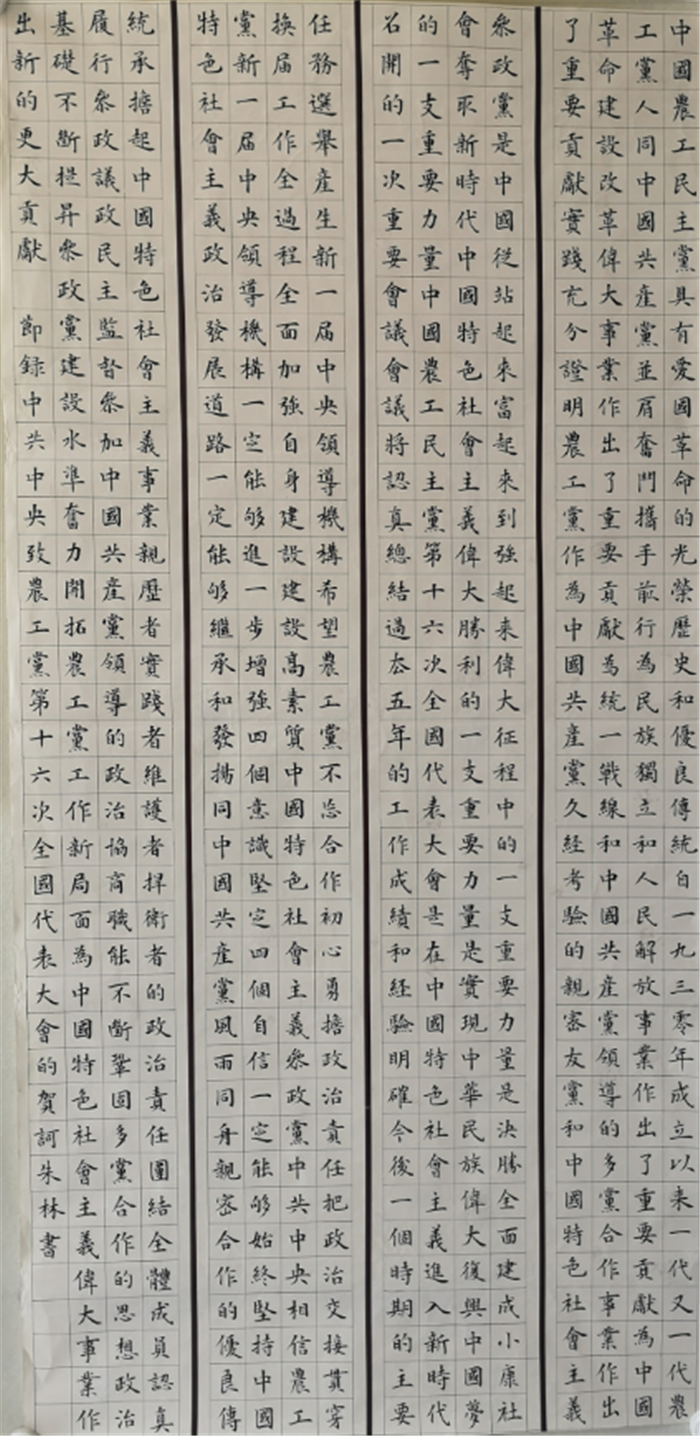 中國農工民主黨具有愛國革命的光榮歷史和優良傳統自一九三零年成立以来一代又一代農
工黨人同中國共產黨並肩奮鬥攜手前行為民族獨立和人民解放事業作出了重要貢獻為中國
革命建設改革偉大事業作出了重要貢獻為統一戰線和中國共產黨領導的多黨合作事業作出
了重要貢獻實踐充分證明農工黨作為中國共產黨久經考驗的親密友黨和中國特色社會主義
叅政黨是中國從站起來富起來到強起来偉大征程中的一支重要力量是決勝全面建成小康社
會奪取新時代中國特色社會主義偉大勝利的一支重要力量是實現中華民族偉大復興中國夢
的一支重要力量中國農工民主黨第十六次全國代表大會是在中國特色社會主義進入新時代
召開的一次重要會議會議將認真總結過去五年的工作成績和經驗明確今後一個時期的主要
任務選舉產生新一届中央領導機構希望農工黨不忘合作初心勇擔政治責任把政治交接貫穿
換届工作全過程全面加強自身建設建設高素質中國特色社會主義叅政黨中共中央相信農工
黨新一届中央領導機構一定能够進一步增強四個意識堅定四個自信一定能够始終堅持中國
特色社會主義政治發展道路一定能够繼承和發揚同中國共產黨風雨同舟親密合作的優良傳
統承擔起中國特色社會主義事業親歷者實踐者維護者捍衛者的政治責任團結全體成員認真
履行叅政議政民主監督叅加中國共產黨領導的政治協商職能不斷鞏固多黨合作的思想政治
基礎不斷提昇叅政黨建設水準奮力開拓農工黨工作新局面為中國特色社會主義偉大事業作
出新的更大貢獻 節録中共中央致農工黨第十六次全國代表大會的賀詞朱林書